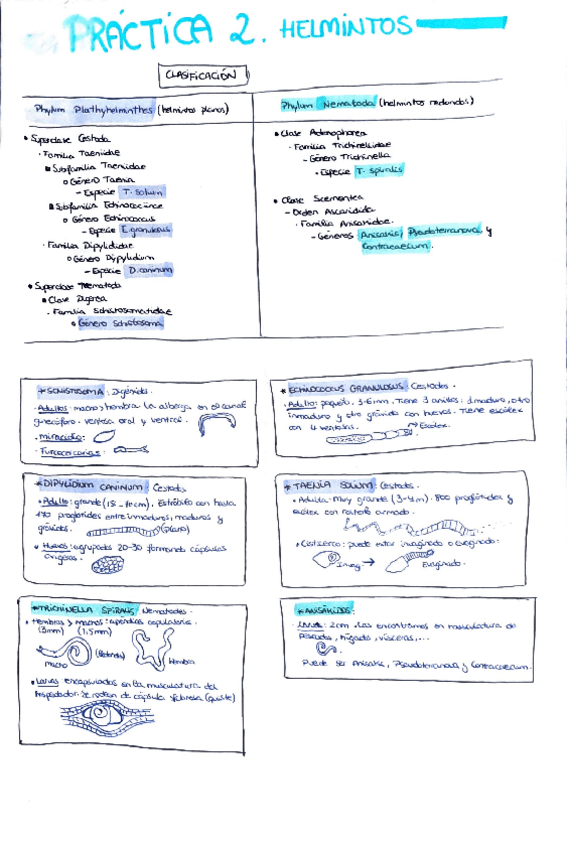 PRÁCTICA 2. HELMINTOS
CLASIFICACIÓN
Phylum Plathyhelminthes (helmintos planos)
• Superclase Cestoda
· Familia Taeniidae
▪ Subfamilia Taeniidae
○ Género Taenia
- Especie T. solium
▪ Subfamilia Echinococcinae
○ Género Echinococcus
- Especie E. granulosus
· Familia Dipylididae
○ Género Dypylidium
- Especie D. caninum
• Superclase Trematoda
• Clase Digenea
· Familia Schistosomatidae
• Género Schistosoma
Phylum Nematoda (helmintos redondos)
• Clase Adenophorea
· Familia Trichinellidae
- Género Trichinella
· Especie T. spiralis
• Clase Secernentea
- Orden Ascaridida
· Familia Anisakidae.
- Géneros Anisakis, Pseudoterranova y
Contracaecum.
* SCHISTOSOMA: Digénidos.
· Adultos: macho y hembra. La alberga en el canal
ginecóforo. ventosa oral y ventral.
· Miracidio:
· Furcocercarias:
* ECHINOCOCCUS GRANULOSUS: Cestodos.
· Adulto: pequeño, 3-6mm. Tiene 3 anillos: 1 maduro, otro
inmaduro y otro grávido con huevos. Tiene escólex
con 4 ventosas.
Escolex.
* DIPYLIDIUM CANINUM: Cestodos
• Adulto: grande Estróbilo con hasta
170 proglótides entre inmaduros, maduros y
grávidos. (plano)
• Huevos: agrupados 20-30 formando cápsulas
ovígeras.
* TAENIA SOLIUM: Cestodos.
• Adulto: muy grande (3-4m). 800 proglótides y
escólex con rostelo armado.
• Cisticerco: puede estar invaginado o evaginado:
Invag.
Evaginado.
* TRICHINELLA SPIRALIS: Nematodos.
• Hembras y machos: apéndices copulatorios.
(3mm) (1,5mm)
(Redondo)
Macho
Hembra
• Larvas encapsuladas en la musculatura del
hospedador. Se rodean de cápsula fibrosa (quiste)
* ANISÁKIDOS:
· Larva: 2cm. Las encontramos en musculatura de
pescados, hígado, vísceras,...
Puede ser Anisakis, Pseudoterranova y Contracaecum.